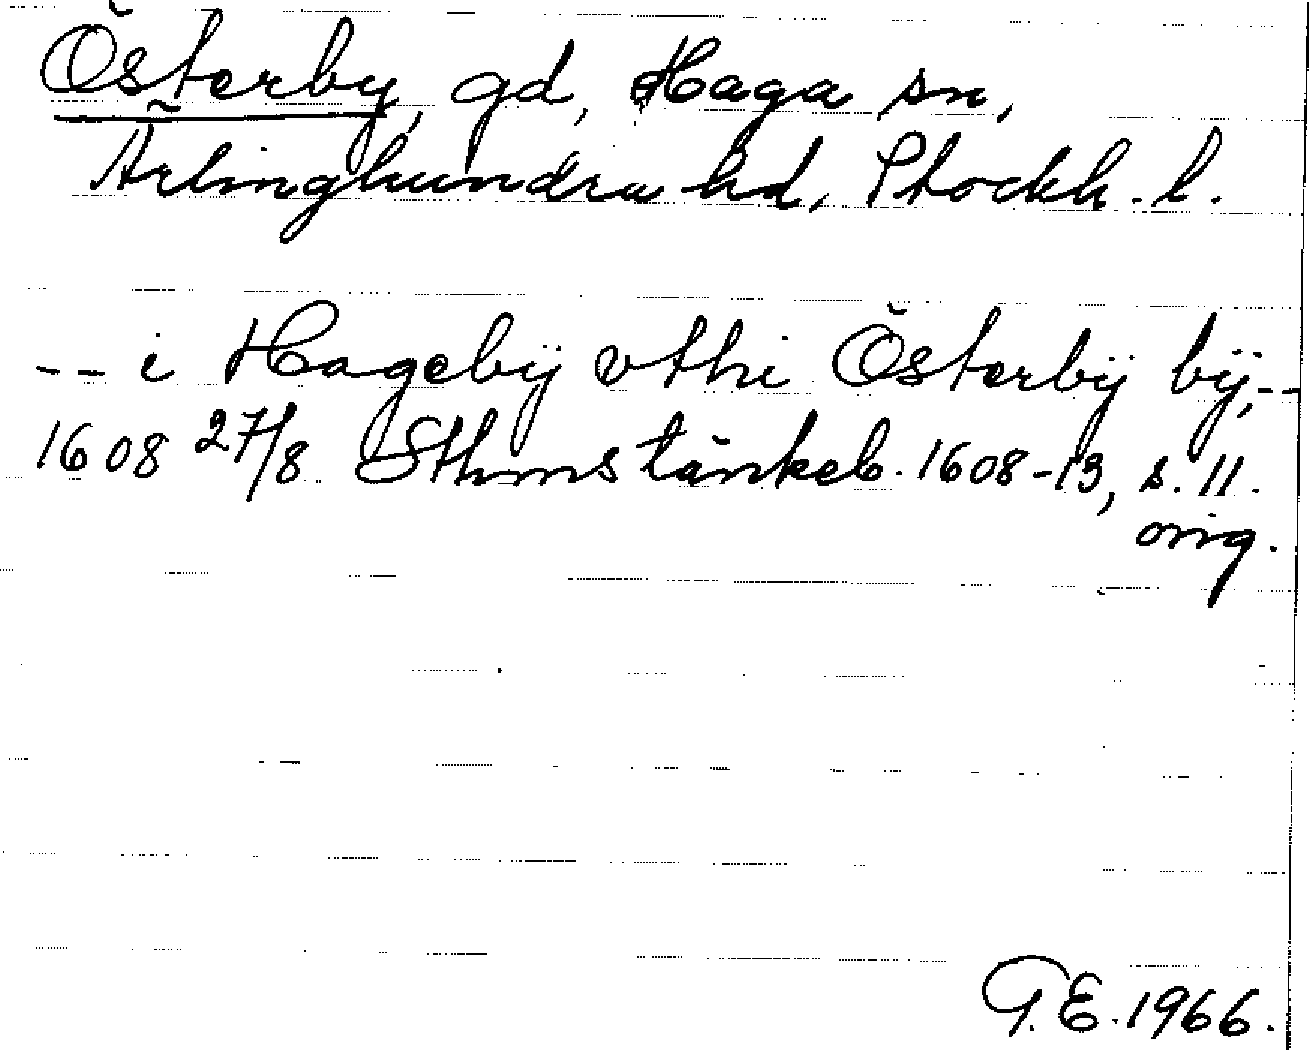 Österby, gd, Haga sn,
Ärlinghundra hd, Stockh. l.
-- i Hagebÿ vthi Österbÿ bÿ, --
1608 27/8 Sthms tänkeb. 1608-13, s. 11.
orig.
G.E. 1966.